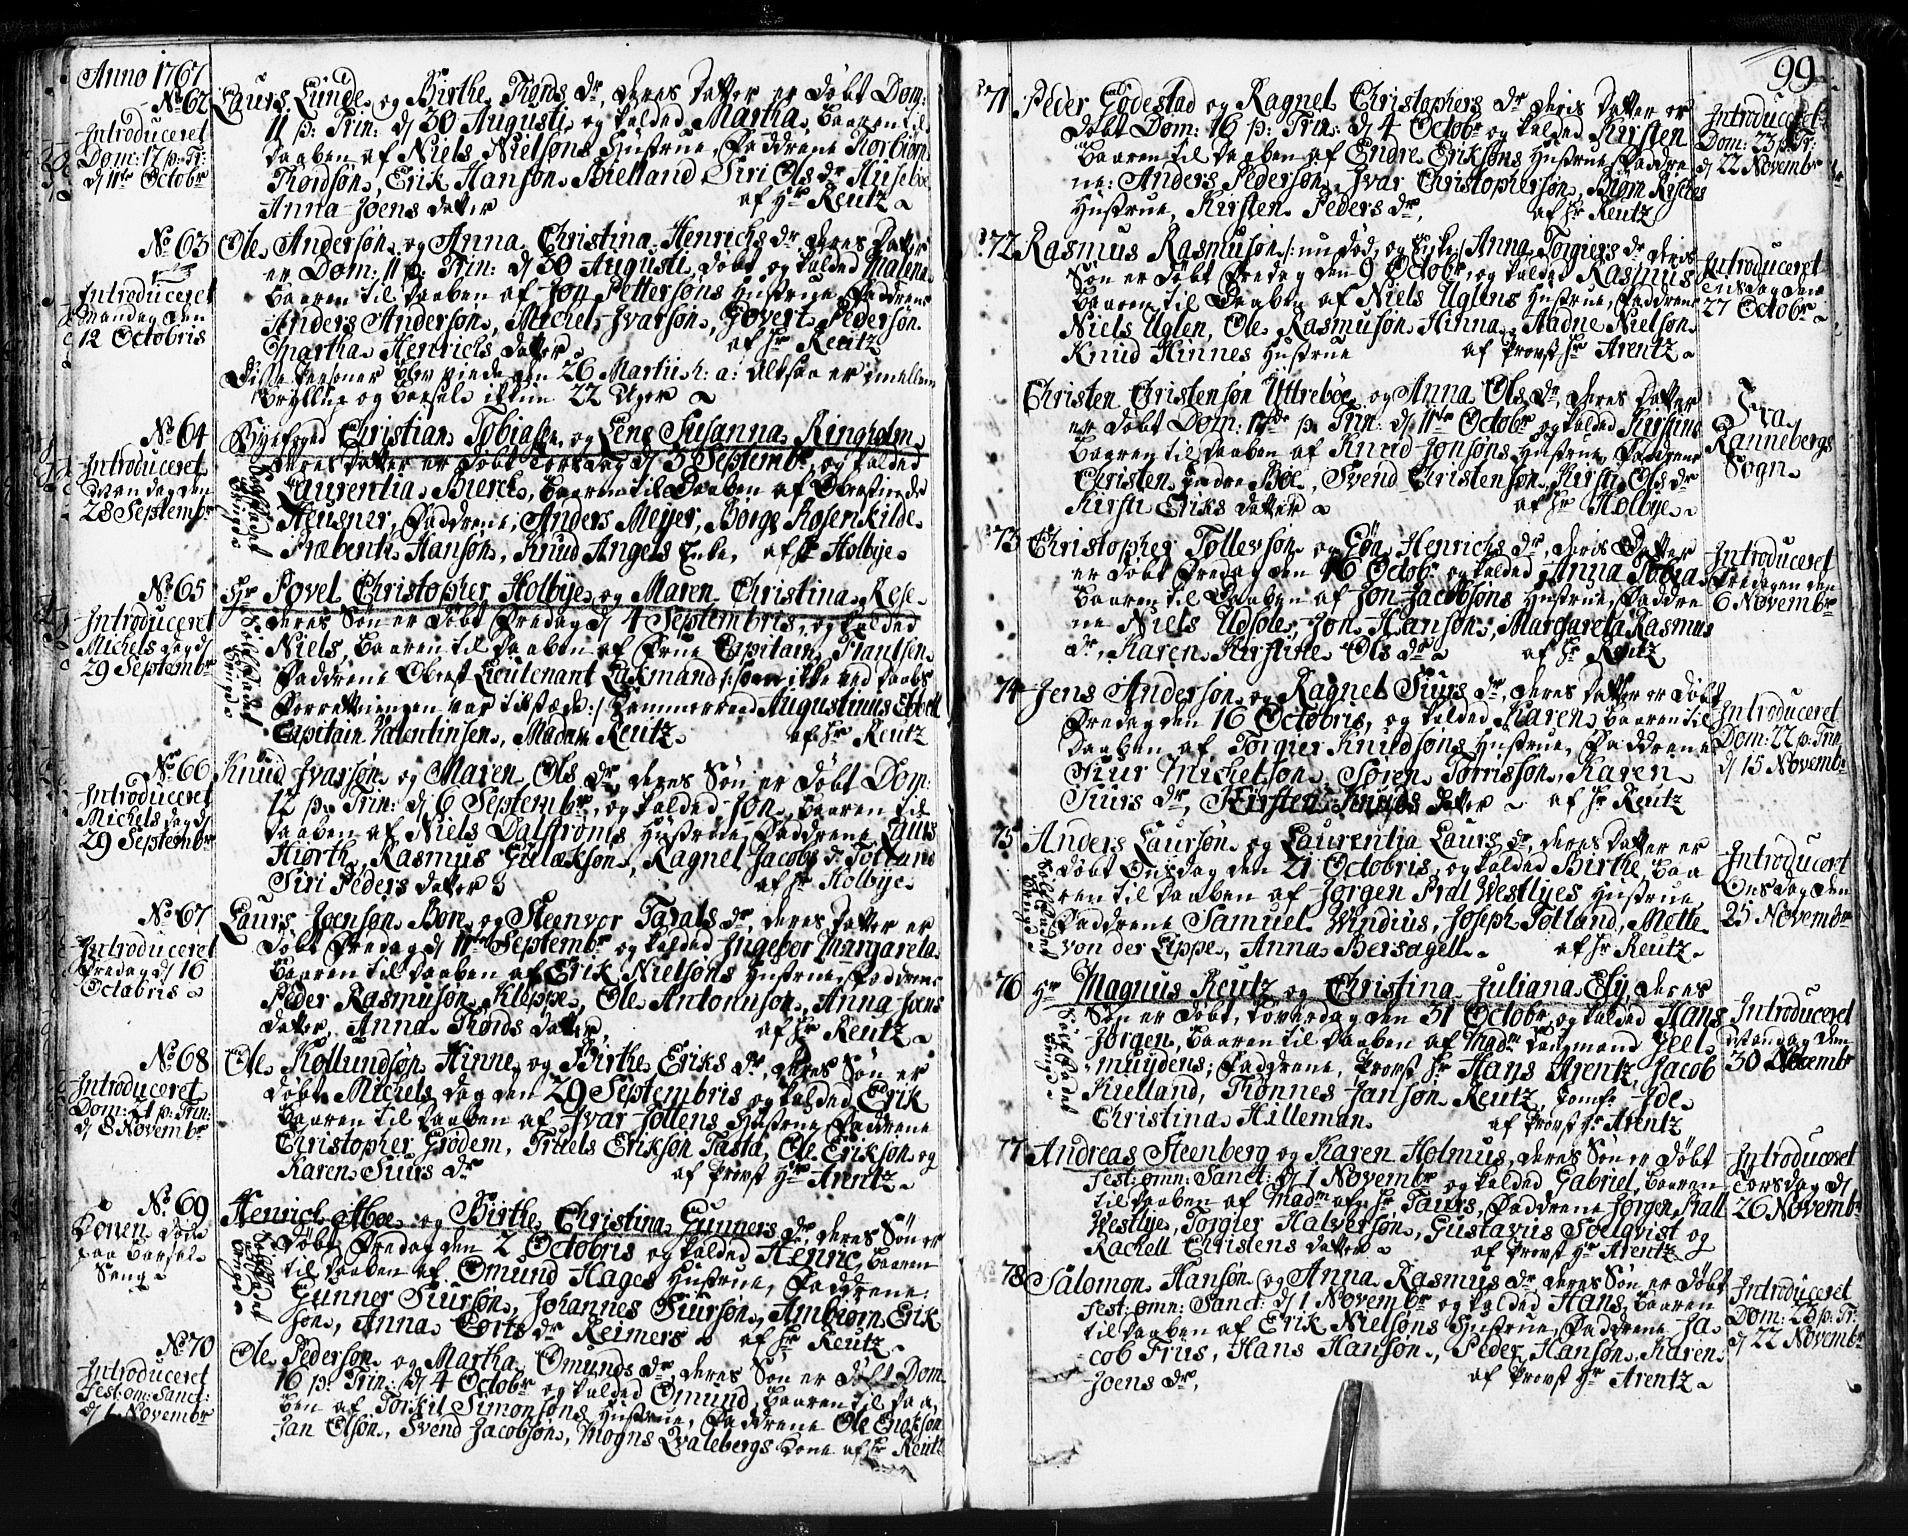 Anno 1767
No 62
Introduceret
Dom: 17 p: Tr:
d 11te Octobr
Laurs Lunde og Birthe Thords dr, deres datter er døbt Dom:
11 p: Trin: d 30 Augusti og kalded Martha, baaren til
daaben af Niels Nielsøns Hustrue, Faddrene Torbiørn
Thordsøn, Erik Hansøn Bielland, Siri Ols dr Huseboe
Anna Joens datter af Hr Reutz
No 63
Introduceret
Mandag den
12 Octobris
Ole Andersøn og Anna Christina Henrichs dr, deres datter
er Dom: 11 p: Trin: d 30 Augusti døbt og kalded Malena
baaren til daaben af Jon Pettersøns Hustrue, Faddrene
Anders Andersøn, Michel Ivarsøn, Govert Pedersøn
Martha Henrichs datter af Hr Reutz
Disse Personer blev viede den 26 Martii h: a: altsaa er imellem
bryllup og barsel ikkun 22 Uger
No 64
Introduceret
Mandag den
28 Septembr
Byefoged Christian Tobiasen og Lene Susanna Ringholm
deres datter er døbt Torsdag d 3 Septembr, og kalded
Laurentia Bierch, baaren til Daaben af Oberstinde
Heusner, Faddrene, Anders Meyer, Børge Rosenkilde
Præbent Hansøn, Knud Angels Enke, af Hr Holbye
No 65
Introduceret
Michels dag d
29 Septembr
Hr Povel Christopher Holbye og Maren Christina Rese
deres Søn er døbt Fredag d 4 Septembris, og kalded
Niels, baaren til daaben af Frue Capitain Frantsen
Faddrene Oberst Lieutenant Lackmand /: som ikke ved daabs
Forretningen var tilstæde :/ Kammerraad Augustinus Ebbell
Capitain Valentinsen, Madam Reutz af Hr Reutz
No 66
Introduceret
Michels dag d
29 Septembr
Knud Ivarsøn og Maren Ols dr, deres Søn er døbt Dom:
12 p: Trin: d 6 Septembr, og kalded Jon, baaren til
daaben af Niels Dalstrøms Hustrue, Faddrene Laurs
Hiorth, Rasmus Gulaksøn, Ragnel Jacobs dr Totland
Siri Peders datter af Hr Holbye
No 67
Introduceret
Fredag d 16
Octobris
Laurs Joensøn Bore og Steenvor Tarals dr, deres datter er
døbt Fredag d 11te Septembr og kalded Ingebor Margareta
baaren til daaben af Erik Nielsøns Hustrue, Faddrene
Peder Rasmusøn Kleppe, Ole Antonusøn, Anna Joens
datter, Anna Thords datter af Hr Reutz
No 68
Introduceret
Dom: 21 p: Trin:
d 8 Novembr
Ole Kollundsøn Hinne og Birthe Eriks dr, deres Søn er
døbt Michels dag den 29 Septembris og kalded Erik
baaren til daaben af Ivar Jottens Hustrue, Faddrene
Christopher Grødem, Truels Eriksøn Tasta, Ole Eriksøn og
Karen Siurs dr af Provst Hr Arentz
No 69
Konen døde
paa barsel
Seng
Henrich Aboe og Birthe Christina Gunners dr, deres Søn er
døbt Fredag den 2 Octobris og kalded Henric, baaren
til daaben af Omund Hages Hustrue, Faddrene
Gunner Siursøn, Johannes Siursøn, Ambiørn Erik
søn, Anna Corts dr Reimers af Hr Reutz
No 70
Introduceret
Fest: om: Sanct:
d 1 Novembr
Ole Pedersøn og Martha Omunds dr, deres Søn er døbt Dom
16 p: Trin: d 4 Octobr og kalded Omund, baaren til daa
ben af Torkil Simonsøns Hustrue, Faddrene Ole Enoksøn
Jan Elsøn, Svend Jacobsøn, Mogns Qvalebergs Kone af Hr Reutz
99
71
Introduceret
Dom: 23 p: Tr:
d 22 Novembr
Peder Godestad og Ragnel Christophers dr deris datter er
døbt Dom: 16 p: Trin: d 4 Octobr og kalded Kirsten
baaren til daaben af Endre Eriksøns Hustrue, Faddre
ne: Anders Pedersøn, Ivar Christophersøn, Biørn
Hustrue, Kirsten Peders dr, af Hr Reutz
72
Introduceret
Tiisdag den
27 Octobr
Rasmus Rasmusøn /: nu død, og Pige Anna Torgiers dr deris
Søn er døbt Fredag den 9 Octobr, og kalded Rasmus
baaren til Daaben af Niels Uglens Hustrue, Faddrene
Niels Uglen, Ole Rasmusøn Hinna, Aadne Nielsøn
Knud Hinnes Hustrue af Provst Hr Arentz
Fra
Rannebergs
Sogn
Christen Christensøn Uttreboe og Anna Ols dr, deres datter
er døbt Dom: 17de p: Trin: d 11te Octobr og kalded Kirstine
baaren til daaben af Knud Jonsøns Hustrue, Faddrene
Christen Indre Bøe, Svend Christensøn, Kirsti Ols dr
Kirsti Eriks datter af Hr Holbye
73
Introduceret
Fredagen den
6 Novembr
Christopher Tollevsøn og Göa Henrichs dr, deris Datter
er døbt Fredag den 16 Octobr og kalded Anna Tobia
baaren til Daaben af Jon Jacobsøns Hustrue, Faddre
ne Niels Udsole, Jon Hansøn, Margareta Rasmus
dr, Karen Kirstine Ols dr af Hr Reutz
74
Introduceret
Dom: 22 p: Trin
d 15 Novembr
Jens Andersøn og Ragnel Siurs dr, deres datter er døbt
Fredag den 16 Octobris, og kalded Karen, baaren til
Daaben af Torgier Knudsøns Hustrue, Faddrene
Siur Michelsøn, Søren Torrissøn, Karen
Siurs dr, Kirsten Knuds datter af Hr Reutz
75
Introduceret
Onsdag den
25 Novembr
Anders Laursøn og Laurentia Laurs dr, deres datter er
døbt Onsdag den 21 Octobris, og kalded Birthe, baa
ren til daaben af Jørgen Pral Westlyes Hustrue
Faddrene Samuel Wndius, Joseph Totland, Mette
von der Lippe, Anna Bersagel af Hr Reutz
76
Introduceret
Mandag den
30 Novembr
Hr Magnus Reutz og Christina Juliana Ely, deres
Søn er døbt, Løverdag den 31 Octobr, og kalded Hans
Jørgen, baaren til daaben af Madm Langmand Geel
muydens, Faddrene, Provst Hr Hans Arentz, Jacob
Kielland, Trønnes Jansøn Reutz, Jomfr Ide
Christina Hilleman af Provst Hr Arentz
77
Introduceret
Torsdag d
26 Novembr
Andreas Steenberg og Karen Holmus, deres Søn er døbt
Fest: omn: Sanct: d 1 Novembr og kalded Gabriel, baaren
til daaben af Madm Taurs, Faddrene Jørgen Prall
Westlye, Torgier Halversøn, Gustavus Soelqvist og
Rachell Christens datter af Provst Hr Arentz
78
Introduceret
Dom: 23 p: Tr:
d 22 Novembr
Salomon Hansøn og Anna Rasmus dr deres Søn er døbt
Fest: omn: Sanct: d 1 Novembr og kalded Hans, baaren
til daaben af Erik Nielsøns Hustrue, Faddrene Ja
cob Frus, Hans Hansøn, Peder Hansøn, Karen
Joens dr, af Provst Hr Arentz